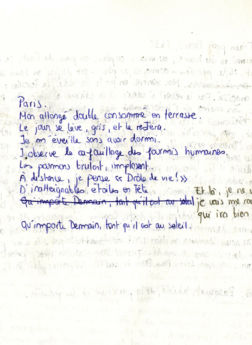 Paris.
Mon allongé double consommé en terrasse.
Le jour se lève, gris, et le restera.
Je m'éveille sans avoir dormi.
J'observe le cafouillage des fourmis humaines.
Les poumons brulant, implosent.
À distance, je pense « Drôle de vie! »
D'inatteignables étoiles en tête
Qu'importe Demain, tant qu'il est au soleil
Qu'importe Demain, tant qu'il est au soleil.
Et là, je ne
je vais me
qui ira bien